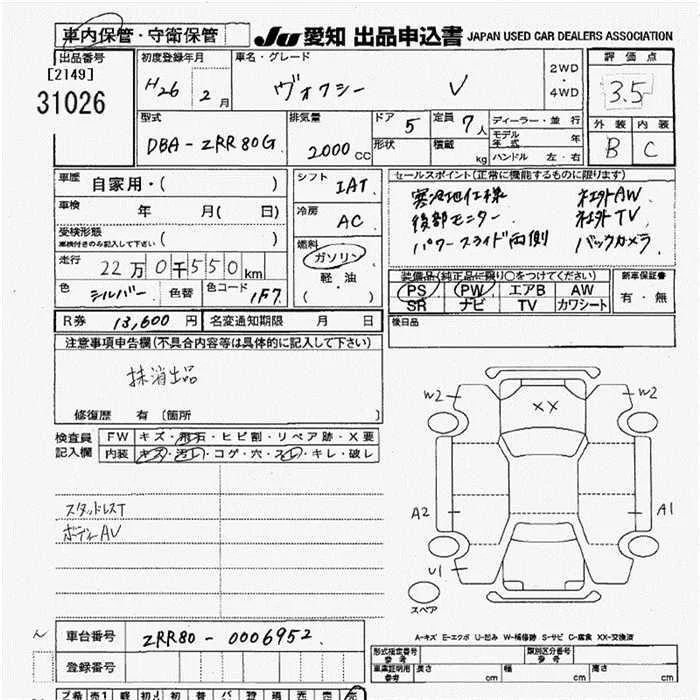 車内保管・守衛保管
JU 愛知 出品申込書 JAPAN USED CAR DEALERS ASSOCIATION
出品番号 [2149] 31026
初度登録年月 H26 2月
車名・グレード ヴォクシー V
2WD・4WD
評価点 3.5
型式 DBA-ZRR80G
排気量 2000 CC
ドア 5 形状
定員 7人 積載 kg
ディーラー・並行
モデル年式 年
ハンドル 左・右
外装 B 内装 C
車歴 自家用・( )
車検 年 月( 日)
受検形態 車検付きのみ記入して下さい ( )
走行 22万0千550km
色 シルバー 色替 色コード 1F7
シフト IAT
冷房 AC
燃料 ガソリン 軽油 ( )
セールスポイント(正常に機能するものに限ります)
寒冷地仕様 社外AW
後部モニター 社外TV
パワースライド両側 バックカメラ
装備品(純正品に限り○をつけてください)
PS PW エアB AW
SR ナビ TV カワシート
新車保証書 有・無
後日品
R券 13,600円 名変通知期限 月 日
注意事項申告欄(不具合内容等は具体的に記入して下さい)
抹消出品
修復歴 有 〔箇所 〕
検査員記入欄
FW キズ・飛石・ヒビ割・リペア跡・X要
内装 キズ・汚レ・コゲ・穴・スレ・キレ・破レ
スタッドレスT
ボディAV
W2 XX W2
A2 A1
U1
スペア
A-キズ E-エクボ U-凹み W-補修跡 S-サビ C-腐食 XX-交換済
車台番号 ZRR80-0006952
登録番号
形式指定番号 参考 類別区分番号 参考
車庫証明用 参考 長さ cm 幅 cm 高さ cm